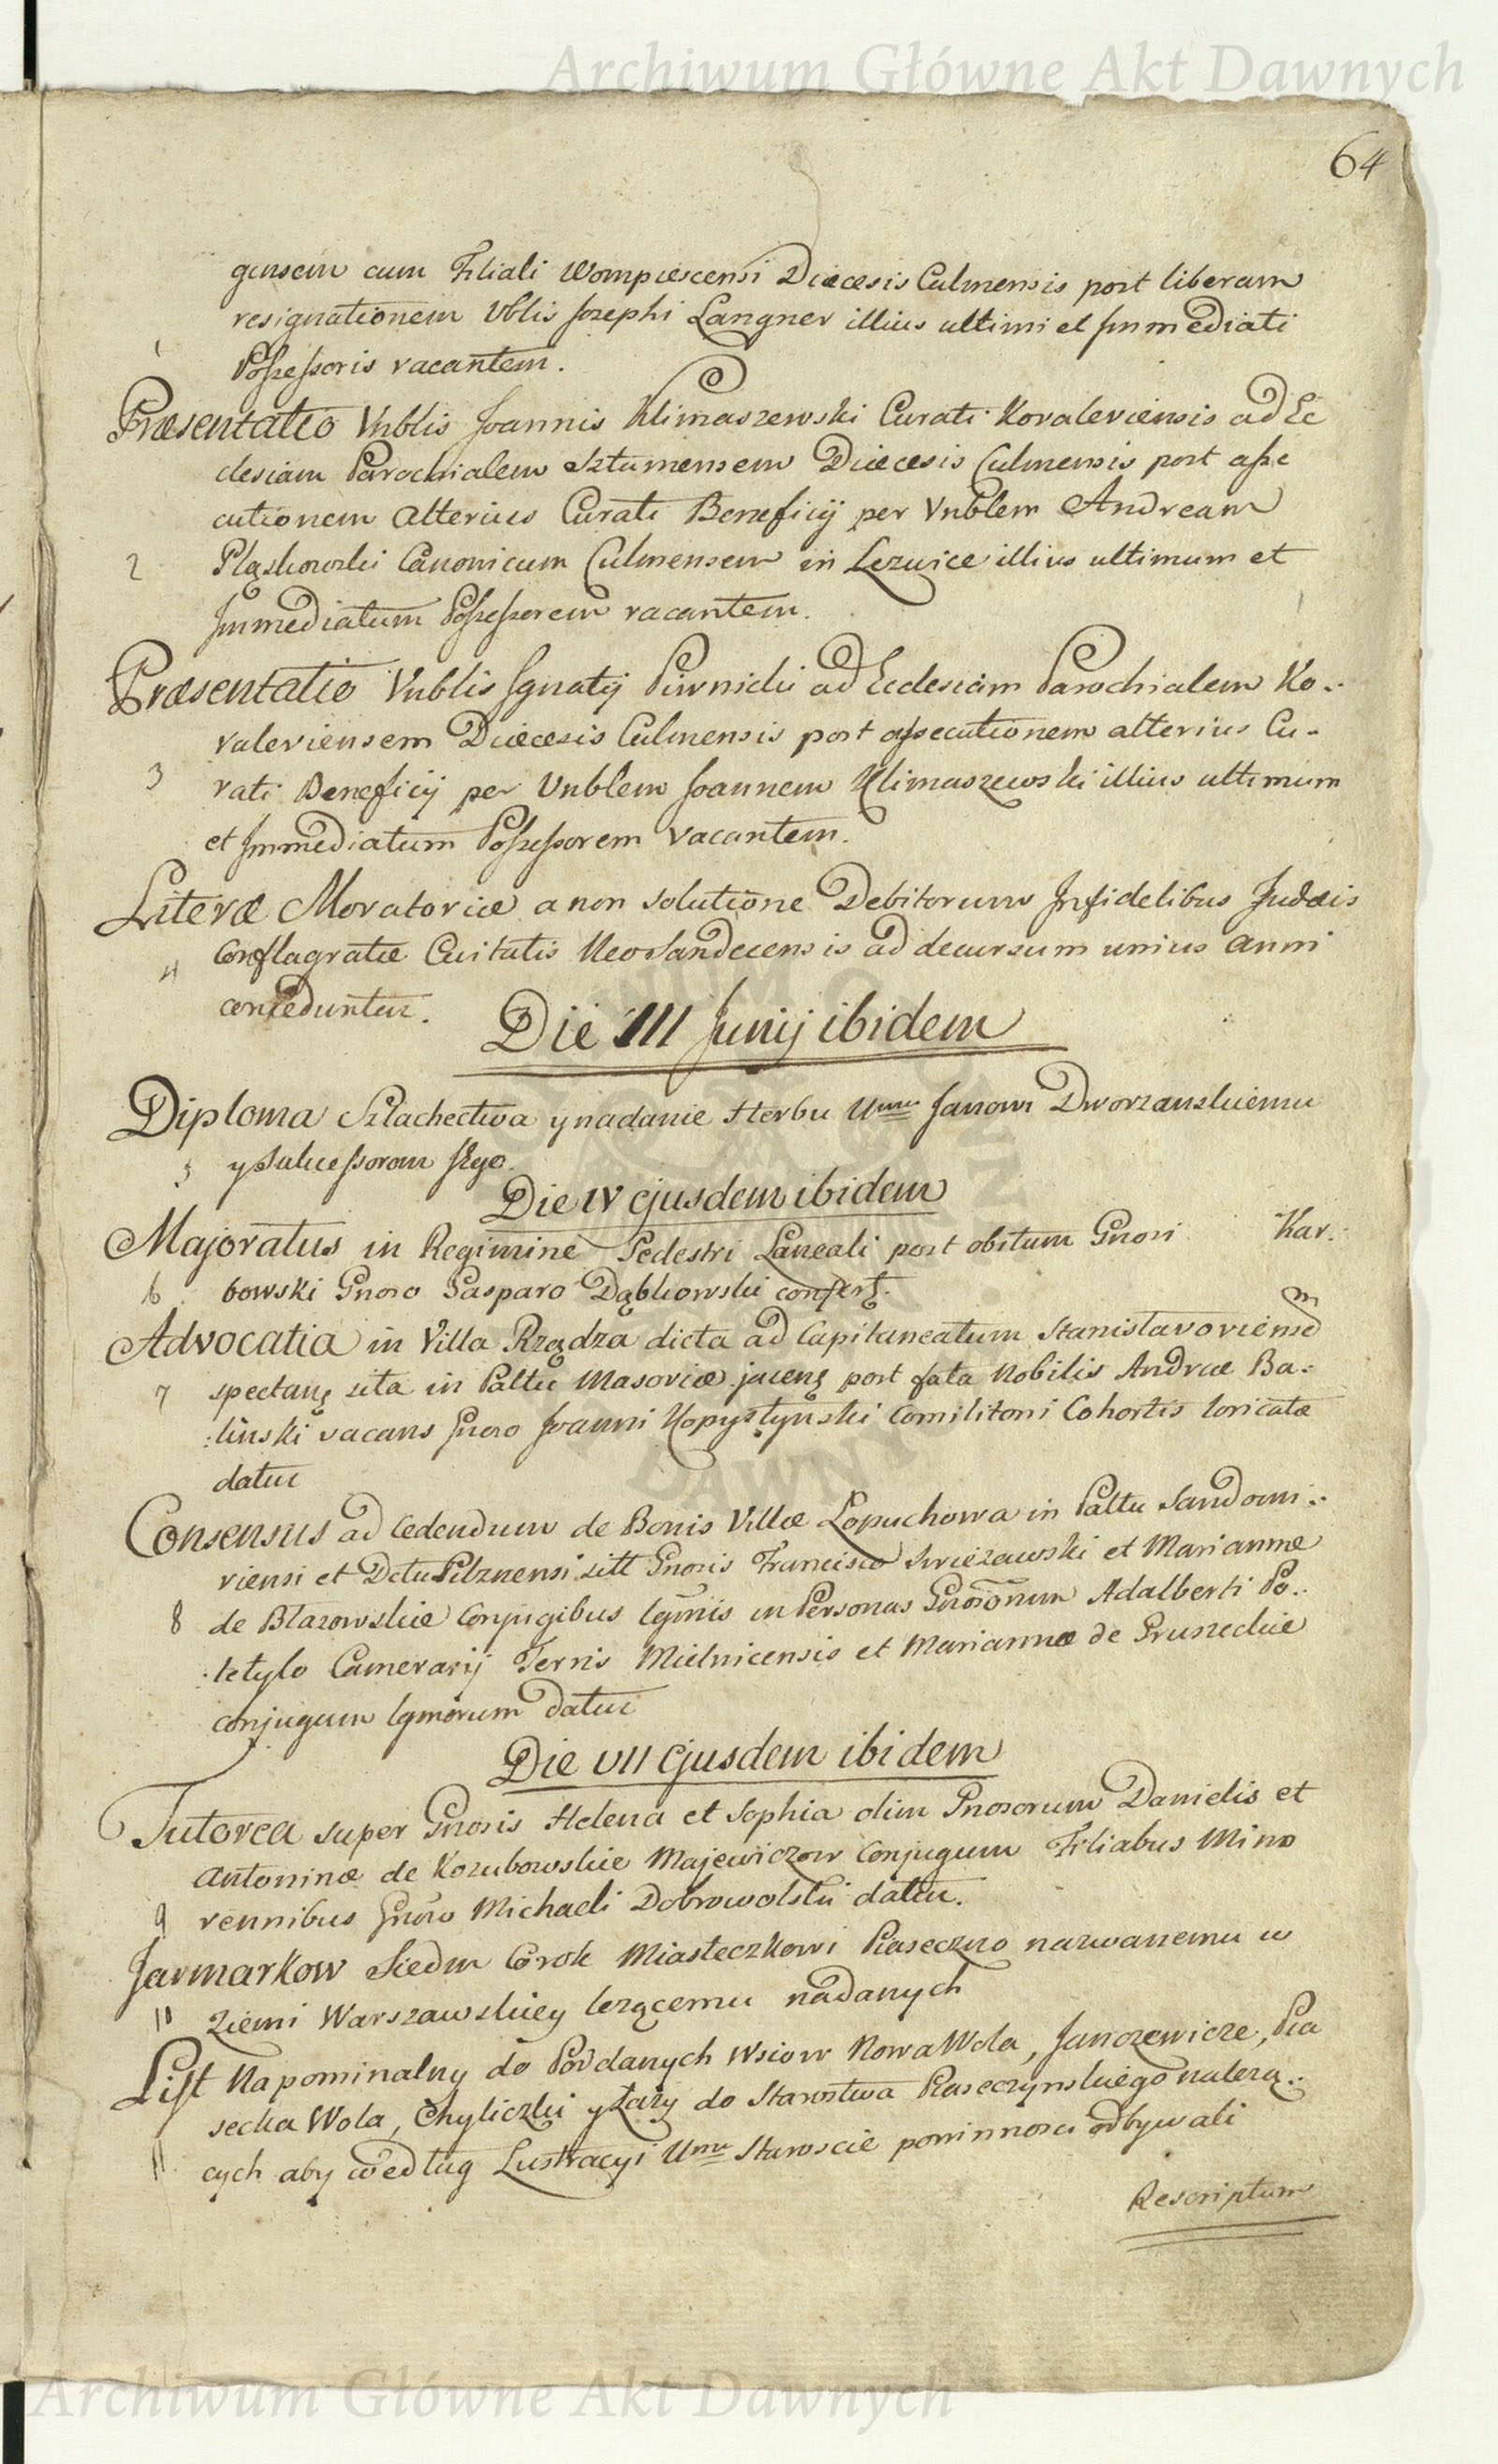 Archiwum Główne Akt Dawnych
64
gensem cum Filiali Wompiescensi Diæcesis Culmensis post liberam
resignationem Vblis Josephi Langner illius ultimi et Immediati
1
Possessoris vacantem.
Præsentatio Vnblis Joannis Klimaszewski Curati Kovaleviensis ad Ec
clesiam Parochialem Sztumensem Diæcesis Culmensis post asse
cutionem alterius Curati Beneficij per Vnblem Andream
2 Pląskowski Canonicum Culmensem in illius ultimum et
Immediatum Possessorem vacantem.
Præsentatio Vnblis Ignatij Piwnicki ad Ecclesiam Parochialem Ko-
valeviensem Diæcesis Culmensis post assecutionem alterius Cu-
3 rati Beneficij per Vnblem Joannem Klimaszewski illius ultimum
et Immediatum Possessorem vacantem.
Literæ Moratoriæ a non solutione Debitorum Infidelibus Judæis
4 Conflagratæ Civitatis Neosandecensis ad decursum unius anni
conceduntur.
Die III Junij ibidem
Diploma Szlachectwa y nadanie Herbu Umu Janowi Dworzanskiemu
5 y Sukcessorom Jego.
Die IV ejusdem ibidem
Majoratus in Regimine Pedestri Laneali post obitum Gnosi Kar-
6 bowski Gnoso Gasparo Dąbkowski confert.
Advocatia in Villa Rządza dicta ad Capitaneatum Stanislavoviensem
7 spectans sita in Pałtu Masoviæ jacens post fata Nobilis Andreæ Ba-
:linski vacans Gnoso Joanni Kopystyński Comilitoni Cohortis loricatæ
datur
Consensus ad Cedendum de Bonis Villæ Łopuchowa in Pałtu Sandomi-
riensi et Dctu Pilznensi sitt Gnosis Francisco Swieżawski et Mariannæ
8 de Błazowskie Conjugibus lgmis in Personas Gnosorum Adalberti Po-
:letyło Camerarij Terris Mielnicensis et Mariannæ de Gruszeckie
conjugum lgmorum datur
Die VII Ejusdem ibidem
Tutorea super Gnosis Helena et Sophia olim Gnosorum Danielis et
Antoninæ de Kozubowskie Majewiczow Conjugum Filiabus Mino
9 rennibus Gnoso Michaeli Dobrowolski datur.
Jarmarkow Siedm Corok Miasteczkowi Piaseczno nazwanemu w
10 Ziemi Warszawskiey leżącemu nadanych
List Napominalny do Poddanych Wsiow Nowa Wola, Janczewicze, Pia
secka Wola, Chyliczki y Łazy do Starostwa Piaseczynskiego należą-
11 cych aby według Lustracyi Umu Staroscie powinnosci odbywali
Rescriptum
Archiwum Główne Akt Dawnych